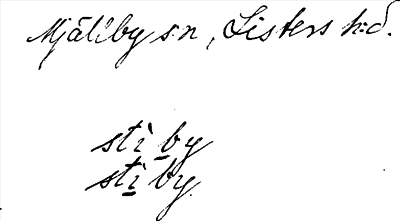 Mjällby s:n, Listers h:d.
stì by
stì by.